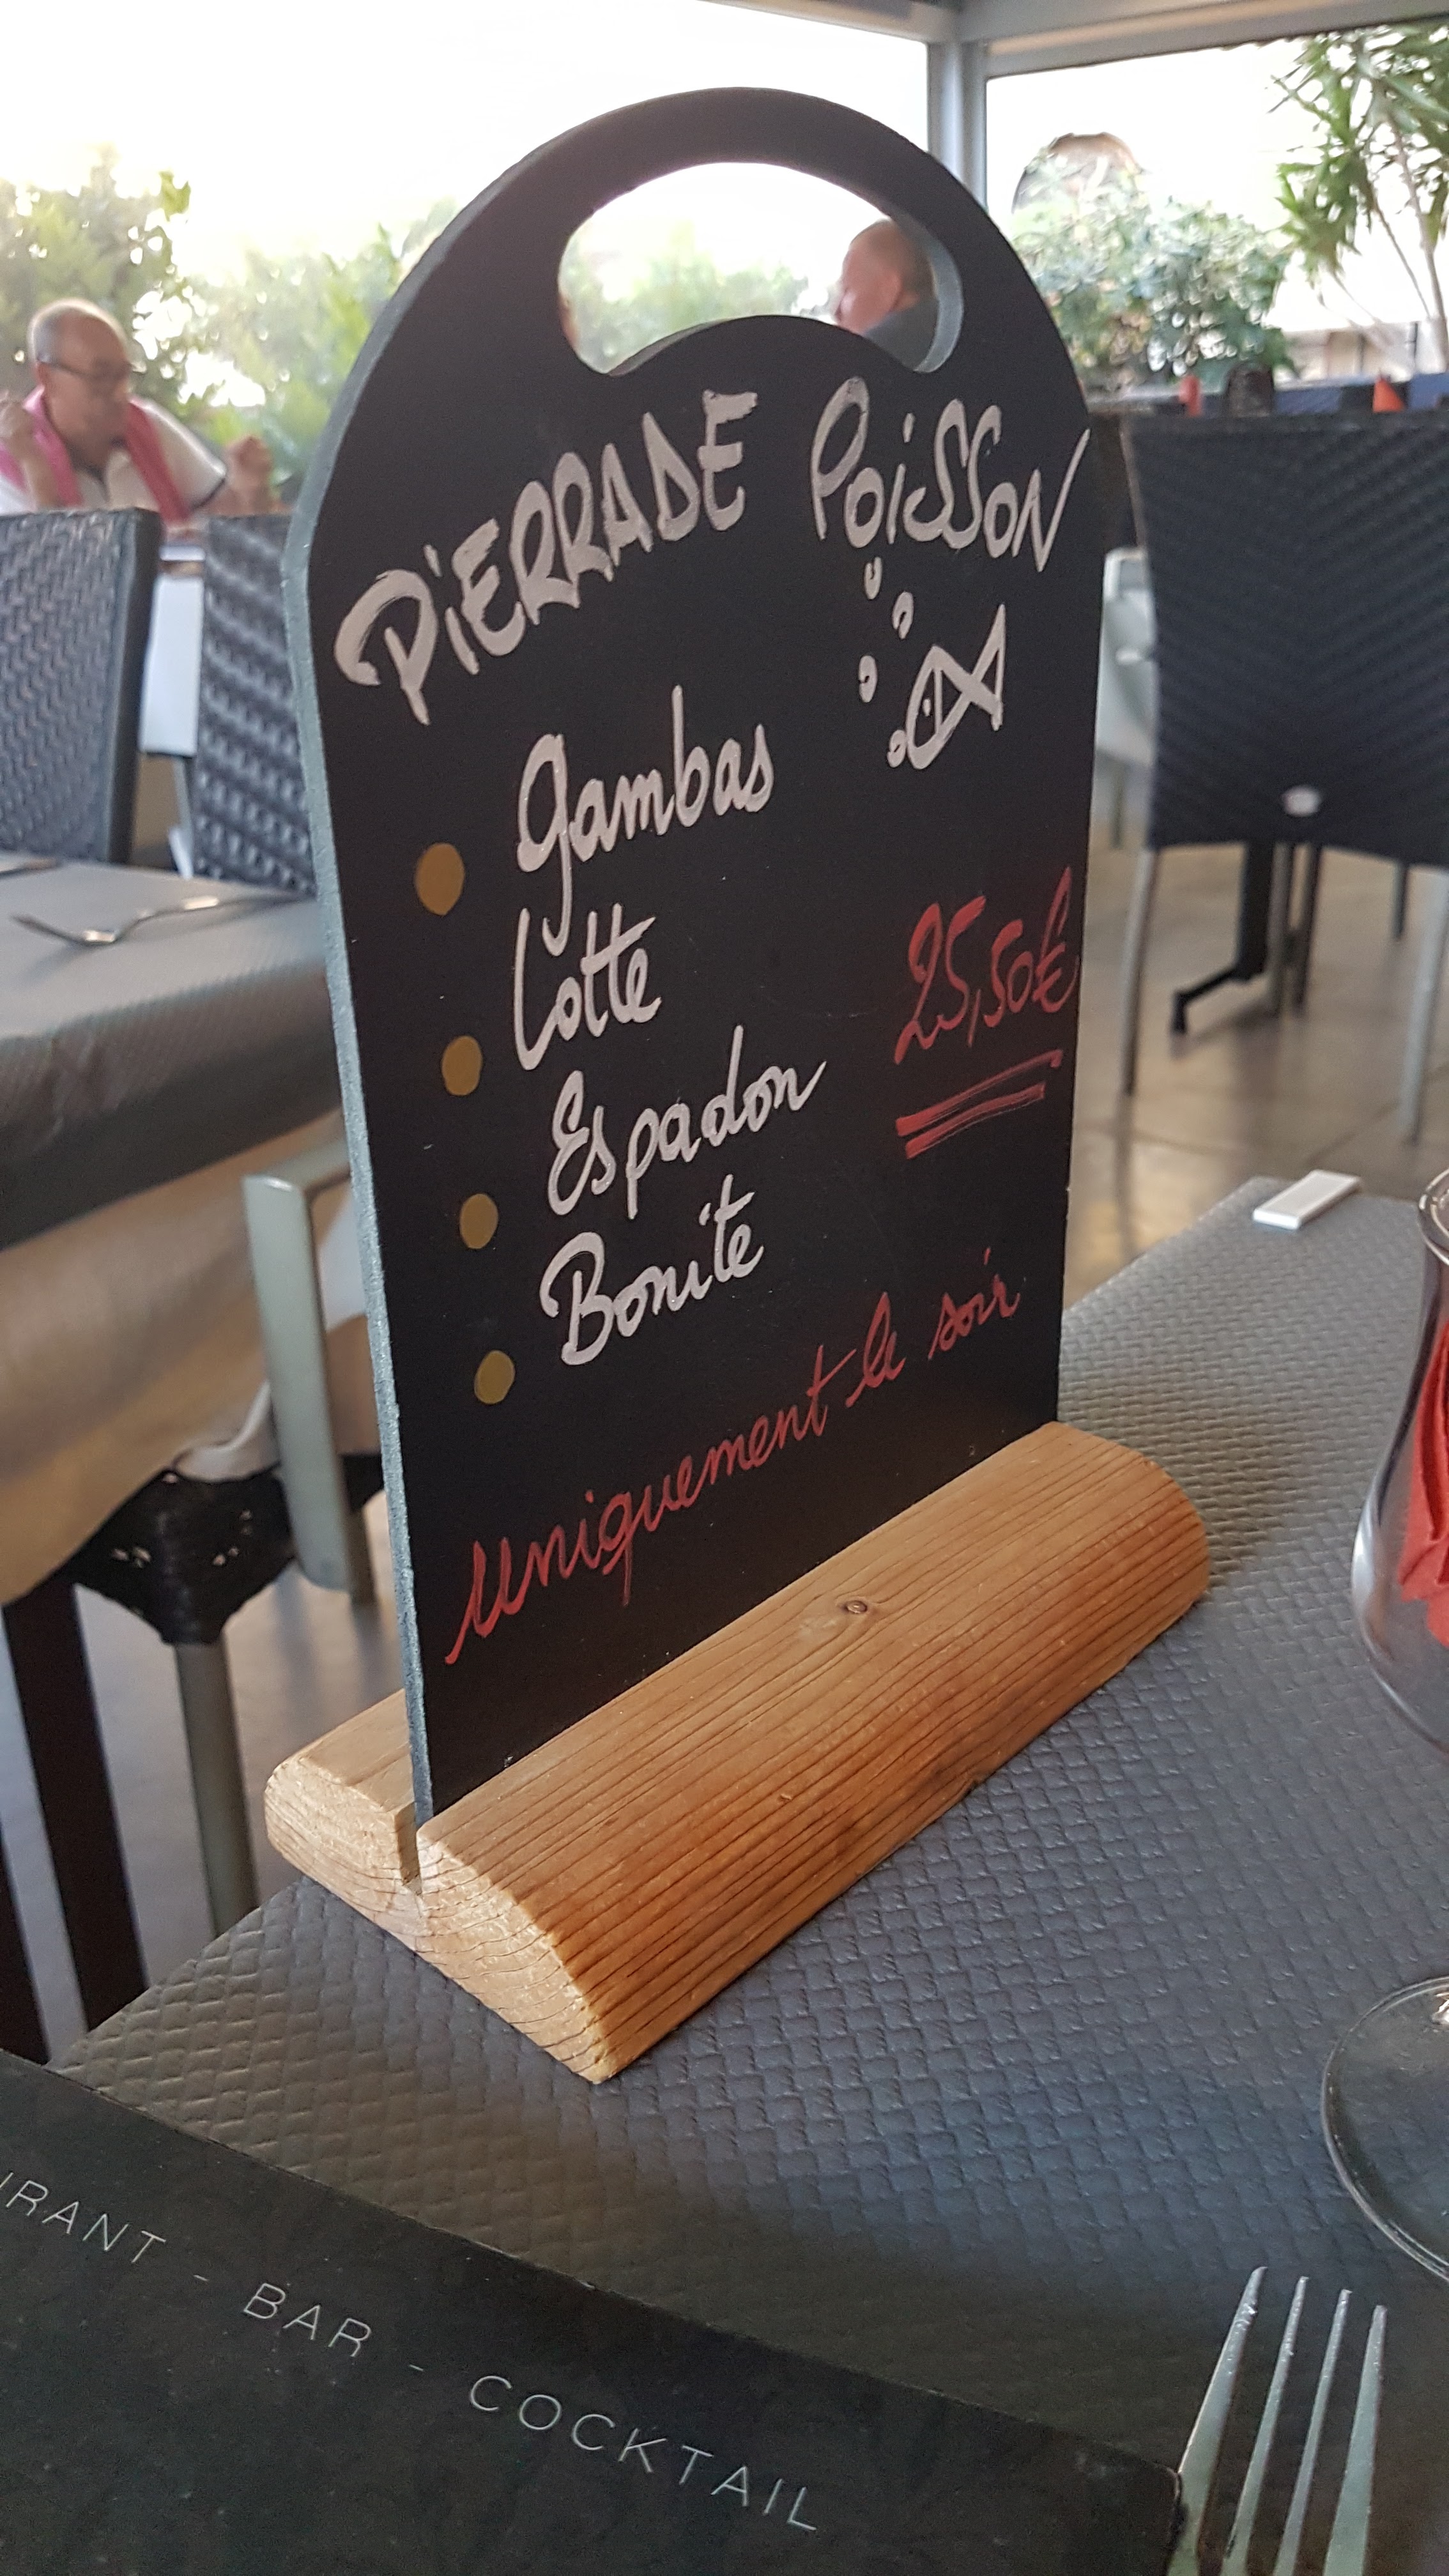 PiERRADE POiSSON
Gambas
Lotte
25,50€
Espadon
Bonite
Uniquement le soir
RANT - BAR - COCKTAIL